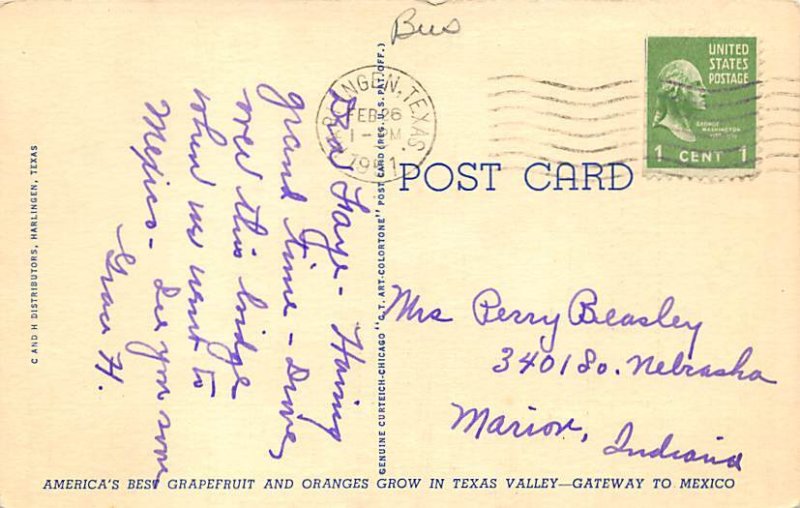 Bus
HARLINGEN, TEXAS
FEB 26
1 - PM
1951
UNITED
STATES
POSTAGE
GEORGE
WASHINGTON
1 CENT 1
POST CARD
Dear Faye - Having
grand time - Drove
over this bridge
when we went to
Mexico - See you soon
Grace H.
Mrs Perry Beasley
3401 So. Nebraska
Marion, Indiana
C AND H DISTRIBUTORS, HARLINGEN, TEXAS
GENUINE CURTEICH-CHICAGO "C.T. ART-COLORTONE" POST CARD (REG. U.S. PAT. OFF.)
AMERICA'S BEST GRAPEFRUIT AND ORANGES GROW IN TEXAS VALLEY—GATEWAY TO MEXICO